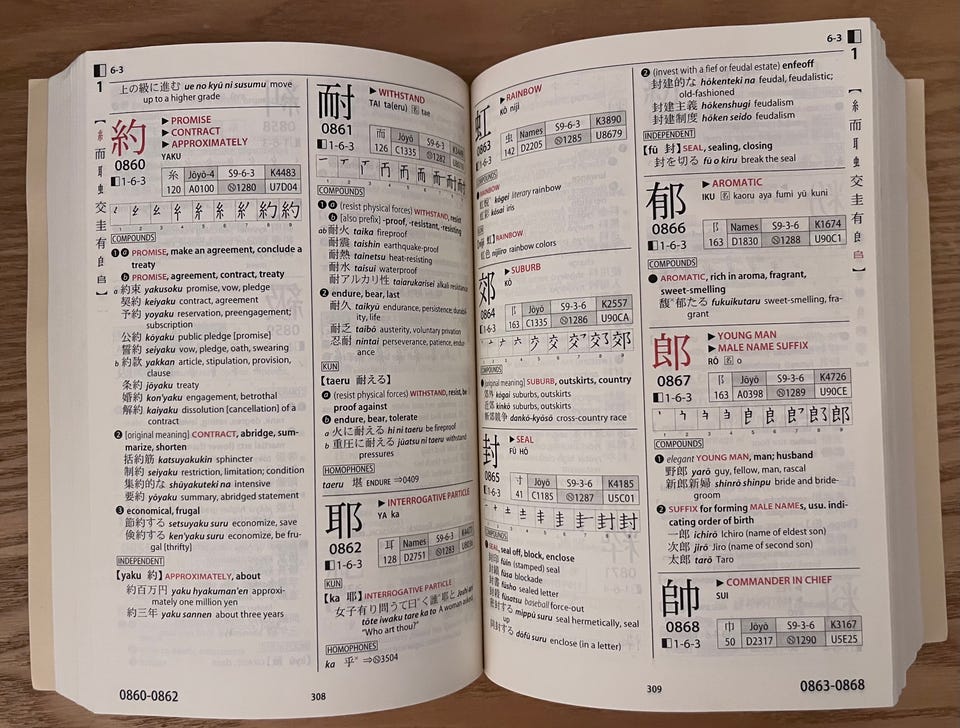 6-3
1
上の級に進む ue no kyū ni susumu move
up to a higher grade
約
0860
1-6-3
▶ PROMISE
▶ CONTRACT
▶ APPROXIMATELY
YAKU
糸 Jōyō-4 S9-6-3 K4483
120 A0100 Ⓝ1280 U7D04
1 2 3 4 5 6 7 8 9
COMPOUNDS
❶ⓐ PROMISE, make an agreement, conclude a
treaty
ⓑ PROMISE, agreement, contract, treaty
a 約束 yakusoku promise, vow, pledge
契約 keiyaku contract, agreement
予約 yoyaku reservation, preengagement;
subscription
公約 kōyaku public pledge [promise]
誓約 seiyaku vow, pledge, oath, swearing
b 約款 yakkan article, stipulation, provision,
clause
条約 jōyaku treaty
婚約 kon'yaku engagement, betrothal
解約 kaiyaku dissolution [cancellation] of a
contract
❷ [original meaning] CONTRACT, abridge, sum-
marize, shorten
括約筋 katsuyakukin sphincter
制約 seiyaku restriction, limitation; condition
集約的な shūyakuteki na intensive
要約 yōyaku summary, abridged statement
❸ economical, frugal
節約する setsuyaku suru economize, save
倹約する ken'yaku suru economize, be fru-
gal [thrifty]
INDEPENDENT
【yaku 約】 APPROXIMATELY, about
約百万円 yaku hyakuman'en approxi-
mately one million yen
約三年 yaku sannen about three years
耐
0861
1-6-3
▶ WITHSTAND
TAI ta(eru) 名 tae
而 Jōyō S9-6-3
126 C1335 Ⓝ1282
COMPOUNDS
❶ⓐ (resist physical forces) WITHSTAND, resist
ⓑ [also prefix] -proof, -resistant, -resisting
ab 耐火 taika fireproof
耐震 taishin earthquake-proof
耐熱 tainetsu heat-resisting
耐水 taisui waterproof
耐アルカリ性 taiarukarisei alkali resistance
❷ endure, bear, last
耐久 taikyū endurance, persistence; durabil-
ity, life
耐乏 taibō austerity, voluntary privation
忍耐 nintai perseverance, patience, endur-
ance
KUN
【taeru 耐える】
ⓐ (resist physical forces) WITHSTAND, resist, be
proof against
ⓑ endure, bear, tolerate
a 火に耐える hi ni taeru be fireproof
b 重圧に耐える jūatsu ni taeru withstand
pressures
HOMOPHONES
taeru 堪 ENDURE ⇒0409
耶
0862
1-6-3
▶ INTERROGATIVE PARTICLE
YA ka
耳 Names S9-6-3
128 D2751 Ⓝ1283
KUN
【ka 耶】 INTERROGATIVE PARTICLE
女子有り問うて曰く誰˟耶と Joshi ari
tōte iwaku tare ka to A woman asked,
“Who art thou?”
HOMOPHONES
ka 乎˟ ⇒Ⓝ3504
0860-0862
308
虹
0863
1-6-3
▶ RAINBOW
KŌ niji
虫 Names S9-6-3 K3890
142 D2205 Ⓝ1285 U8679
COMPOUNDS
RAINBOW
kōgei literary rainbow
虹彩 kōsai iris
虹】 RAINBOW
虹色 nijiiro rainbow colors
郊
0864
1-6-3
▶ SUBURB
KŌ
阝 Jōyō S9-3-6 K2557
163 C1335 Ⓝ1286 U90CA
1 2 3 4 5 6 7 8 9
COMPOUNDS
[original meaning] SUBURB, outskirts, country
郊外 kōgai suburbs, outskirts
近郊 kinkō suburbs, outskirts
断郊競争 dankō-kyōsō cross-country race
封
0865
1-6-3
▶ SEAL
FŪ HŌ
寸 Jōyō S9-6-3 K4185
41 C1185 Ⓝ1287 U5C01
1 2 3 4 5 6 7 8 9
COMPOUNDS
SEAL, seal off, block, enclose
封印 fūin (stamped) seal
封鎖 fūsa blockade
封書 fūsho sealed letter
封殺 fūsatsu baseball force-out
密封する mippū suru seal hermetically, seal
up
同封する dōfū suru enclose (in a letter)
6-3
1
❷ (invest with a fief or feudal estate) enfeoff
封建的な hōkenteki na feudal, feudalistic;
old-fashioned
封建主義 hōkenshugi feudalism
封建制度 hōken seido feudalism
INDEPENDENT
【fū 封】 SEAL, sealing, closing
封を切る fū o kiru break the seal
郁
0866
1-6-3
▶ AROMATIC
IKU 名 kaoru aya fumi yū kuni
阝 Names S9-3-6 K1674
163 D1830 Ⓝ1288 U90C1
COMPOUNDS
● AROMATIC, rich in aroma, fragrant,
sweet-smelling
馥˟郁たる fukuikutaru sweet-smelling, fra-
grant
郎
0867
1-6-3
▶ YOUNG MAN
▶ MALE NAME SUFFIX
RŌ 名 o
阝 Jōyō S9-3-6 K4726
163 A0398 Ⓝ1289 U90CE
1 2 3 4 5 6 7 8 9
COMPOUNDS
❶ elegant YOUNG MAN, man; husband
野郎 yarō guy, fellow, man, rascal
新郎新婦 shinrō shinpu bride and bride-
groom
❷ SUFFIX for forming MALE NAMEs, usu. indi-
cating order of birth
一郎 ichirō Ichiro (name of eldest son)
次郎 jirō Jiro (name of second son)
太郎 tarō Taro
帥
0868
1-6-3
▶ COMMANDER IN CHIEF
SUI
巾 Jōyō S9-3-6 K3167
50 D2317 Ⓝ1290 U5E25
309
0863-0868